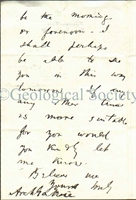 in the morning
or forenoon. I
shall perhaps
be able to see
you in this way
tomorrow if
any other time
is more suitable
for you would
you kindly let
me know.
Believe me
Yours truly
Arch Geikie
© Geological Society